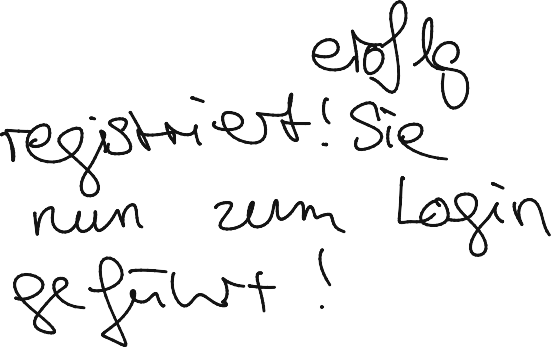 eroflg
registriert! Sie
nun zum Login
geführt!